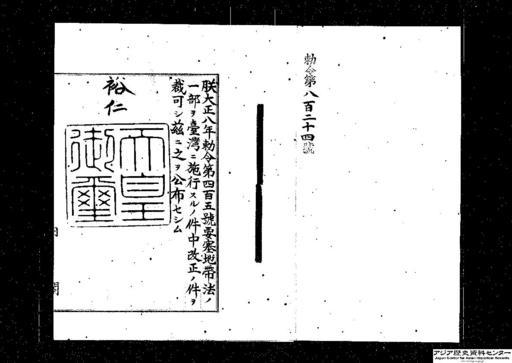 勅令第八百二十四號
朕大正八年勅令第四百五號要塞地帶法ノ
一部ヲ臺灣ニ施行スルノ件中改正ノ件ヲ
裁可シ茲ニ之ヲ公布セシム
裕仁
天皇御璽
内閣
アジア歴史資料センター
Japan Center for Asian Historical Records